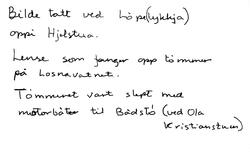 Bilde tatt ved Løpe(lykkja)
oppi Hjelstua.
Lense som fanger opp tømmer
på Losnavatnet.
Tømmeret vart slept med
motorbåter til Bådstø (ved Ola
Kristianstuen)